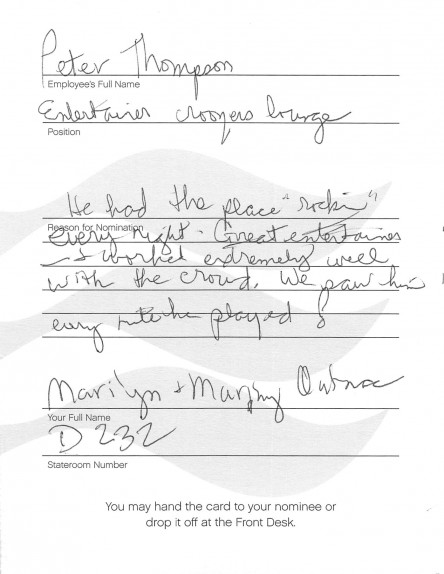 Peter Thompson
Employee's Full Name
Entertainer crooners lounge
Position
He had the place "rockin"
Reason for Nomination
every night - Great entertainer
& worked extremely well
with the crowd. We saw him
every nite he played
Marilyn +
Your Full Name
D 232
Stateroom Number
You may hand the card to your nominee or
drop it off at the Front Desk.